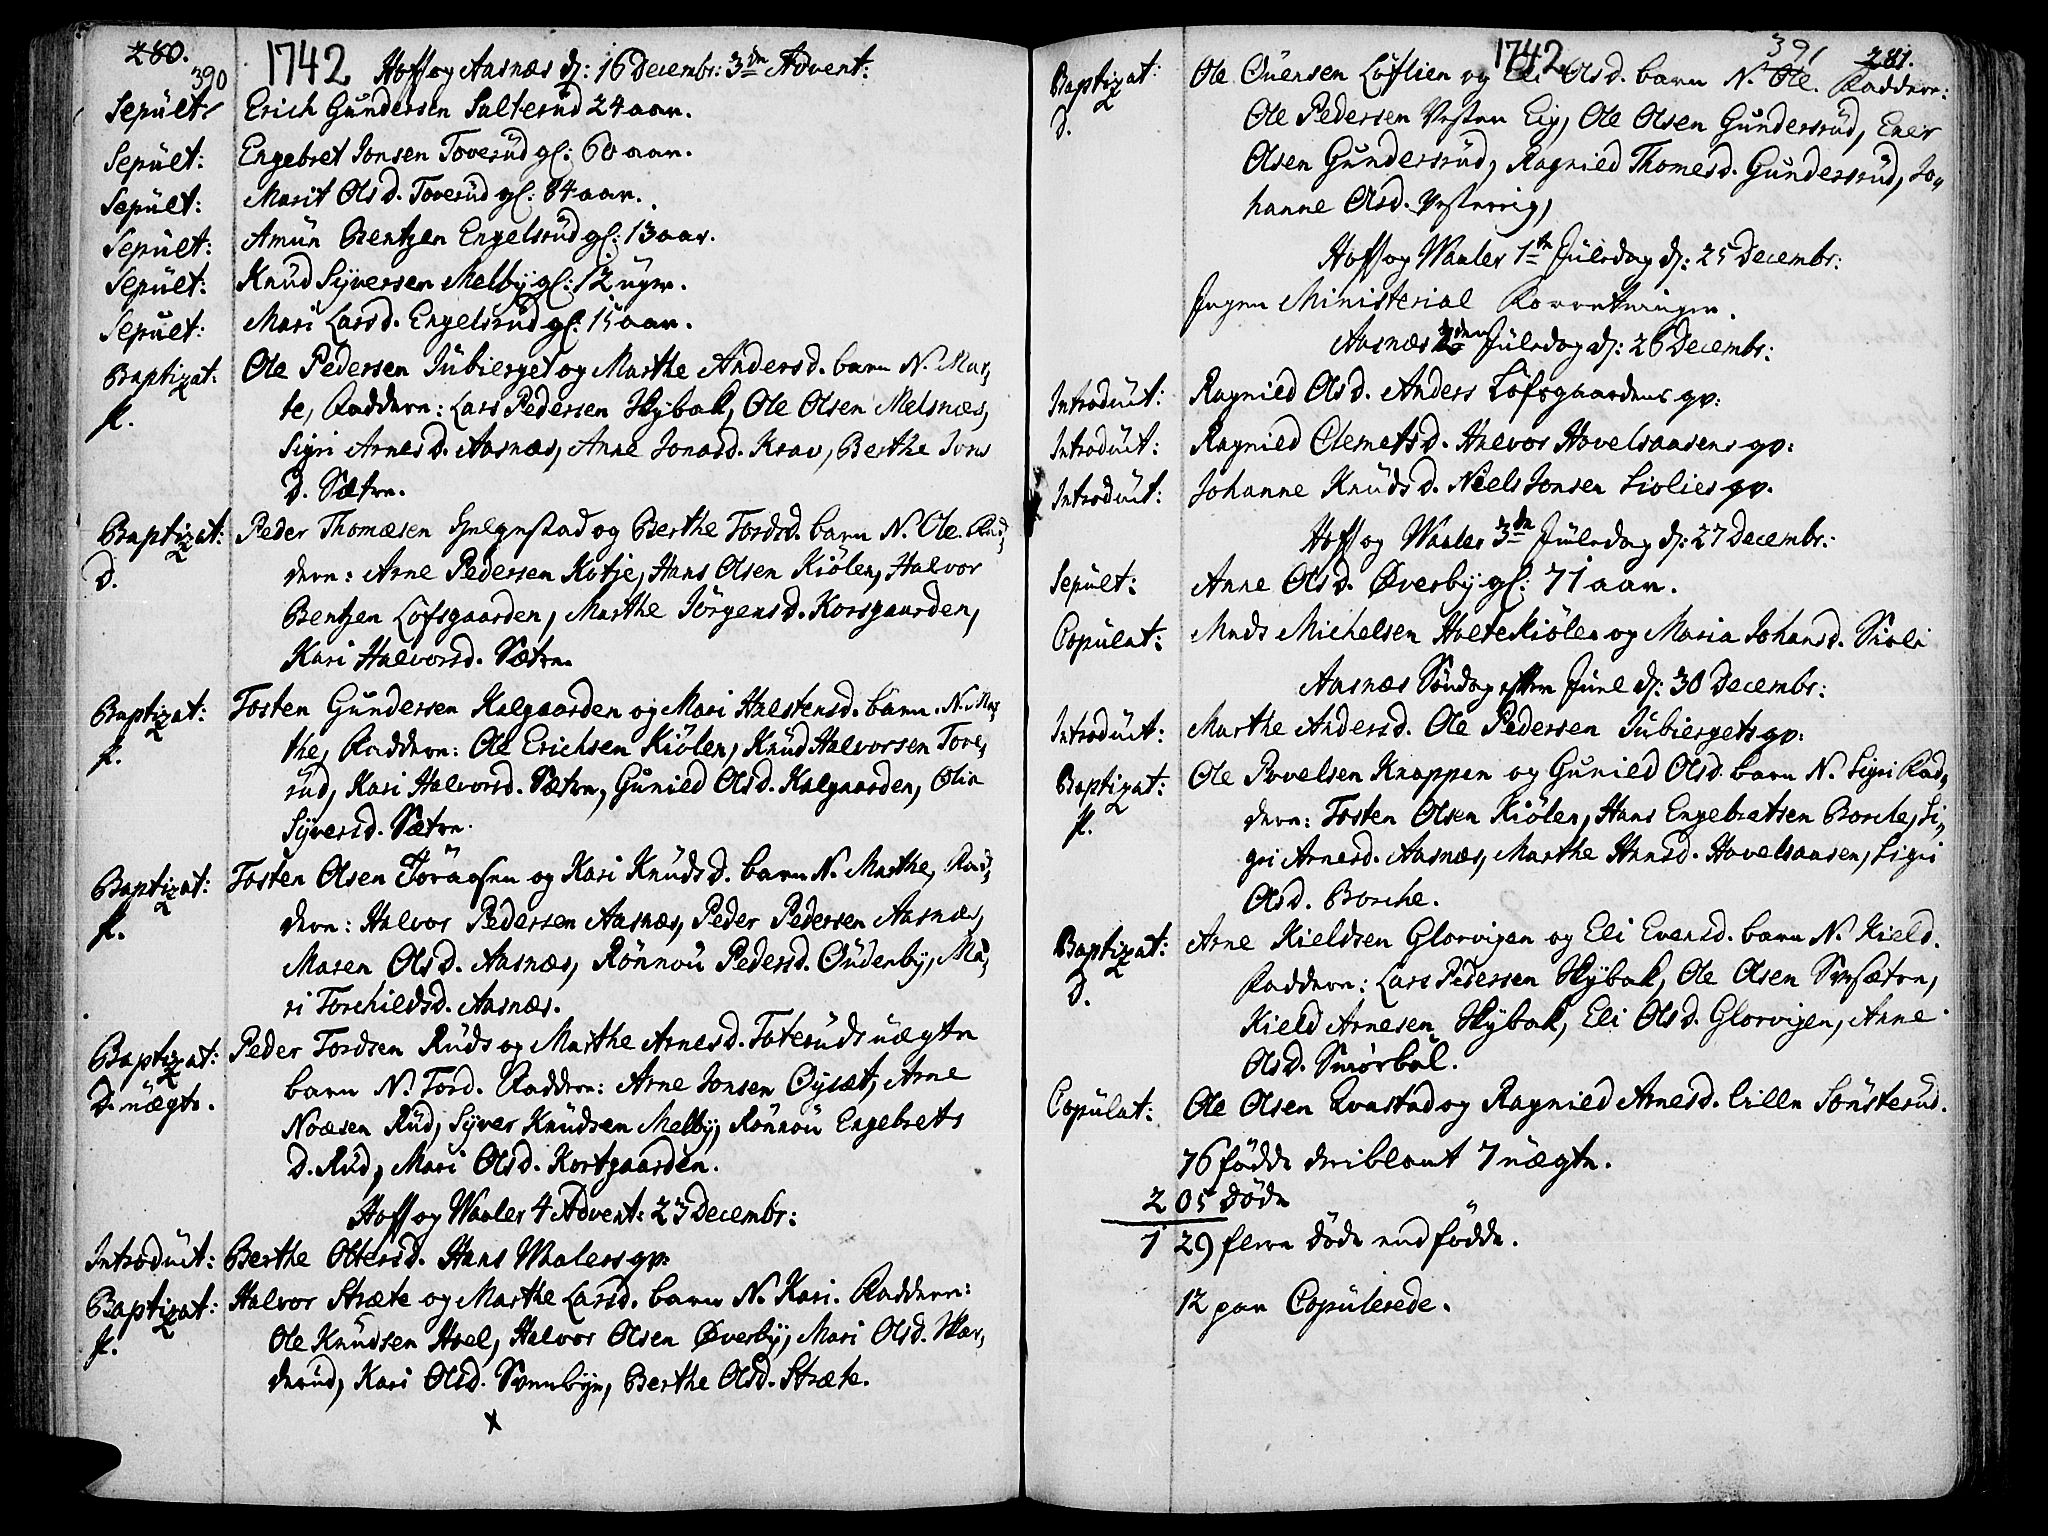 280.
390
1742 Hoff og Aasnæs d: 16 Decembr: 3die Advent:
Sepult: Erich Gundersen Salterud 24 aar.
Sepult: Engebret Jonsen Toverud gl: 60 aar.
Sepult: Marit Olsd. Toverud gl: 84 aar.
Sepult: Amun Bentzen Engelsrud gl: 13 aar.
Sepult: Knud Syversen Melby gl: 12 uger.
Sepult: Mari Larsd. Engelsrud gl: 15 aar.
Baptizat: Ole Pedersen Jubierget og Marthe Andersd. barn N. Mar,
f. te, Faddere: Lars Pedersen Skybak, Ole Olsen Melsnæs,
Sigri Arnesd. Aasnæs, Anne Jonasd. Krav, Berthe Ivers
D. Sætre.
Baptizat: Peder Thomæsen Helgestad og Berthe Tordsd. barn N. Ole. Fad,
D. dere: Arne Pedersen Kotje, Hans Olsen Kiölen, Halvor
Bentzen Löfsgaarden, Marthe Jörgensd. Korsgaarden,
Kari Halvorsd. Sætre.
Baptizat: Tosten Gundersen Kalgaarden og Mari Halstensd. barn N. Mar,
f. the, Faddere: Ole Erichsen Kiölen, Knud Halvorsen Tove,
rud, Kari Halvorsd. Sætre, Gunild Olsd. Kalgaarden, Olia
Syversd. Sætre.
Baptizat: Tosten Olsen Töraasen og Kari Knudsd. barn N. Marthe, Fad,
f. dere: Halvor Pedersen Aasnæs, Peder Pedersen Aasnæs,
Maren Olsd. Aasnæs, Rönnou Pedersd. Oudenby, Ma,
ri Torchildsd. Aasnæs.
Baptizat: Peder Tordsen Ruds og Marthe Arnesd. Toteruds uægte
D. uægte. barn N. Tord. Faddere: Arne Jonsen Oysæt, Arne
Noæsen Rud, Syver Knudsen Melby, Rönnou Engebrets
D. Rud, Mari Olsd. Kortgaarden.
Hoff og Waaler 4 Advent: 23 Decembr:
Introduct: Berthe Ottersd. Hans Waalers qv:
Baptizat: Halvor Stræte og Marthe Larsd. barn N. Kari. Faddere:
f. Ole Knudsen Hoel, Halvor Olsen Øverby, Mari Olsd. Skar,
derud, Kari Olsd. Svenneby, Berthe Olsd. Stræte.
x
1742
391
281.
Baptizat: Ole Ouensen Löflien og Eli Olsd. barn N. Ole. Faddere:
D. Ole Pedersen Vester Eig, Ole Olsen Gundersrud, Ener
Olsen Gundersrud, Ragnild Thomesd. Gundersrud, Jo,
hanne Olsd. Vestereig,
Hoff og Waaler 1te Juledag d: 25 Decembr:
Ingen Ministerial Forretninger.
Aasnæs 2den Juledag d: 26 Decembr:
Introduct: Ragnild Olsd. Anders Löfsgaardens qv:
Introduct: Ragnild Clemetsd. Halvor Hovelsaasens qv:
Introduct: Johanne Knudsd. Niels Jonsen Liolies qv.
Hoff og Waaler 3die Juledag d: 27 Decembr:
Sepult: Anne Olsd. Øverby gl: 71 aar.
Copulat: Mads Michelsen Holtekiölen og Maria Johansd. Sioli
Aasnæs Söndag efter Juul d: 30 Decembr:
Introduct: Marthe Andersd. Ole Pedersen Jubiergets qv:
Baptizat: Ole Povelsen Knappen og Gunild Olsd. barn N. Sigri Fad,
f. dere: Tosten Olsen Kiölen, Hans Engebretsen Borche, Si,
gri Arnesd. Aasnæs, Marthe Hansd. Hovelsaasen, Sigri
Olsd. Borche.
Baptizat: Arne Kieldsen Glorvigen og Eli Evensd. barn N. Kield.
D. Faddere: Lars Pedersen Skybak, Ole Olsen Sætre,
Kield Arnesen Skybak, Eli Olsd. Glorvigen, Anne
Olsd. Smörböl.
Copulat: Ole Olsen Qvastad og Ragnild Arnesd. lille Sönsterud.
76 födde deriblant 7 uægte.
205 döde
129 flere döde end födde.
12 par Copulerede.